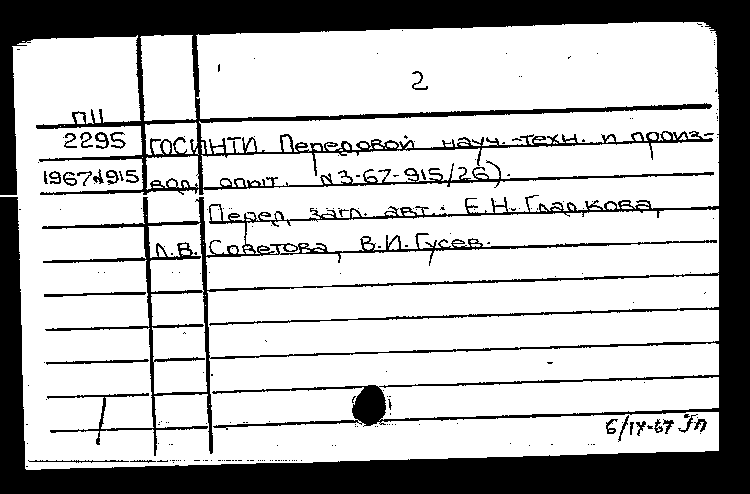 2
П11
2295 ГОСИНТИ. Передовой науч.-техн. и произ-
1967 №915 вод. опыт. N3-67-915/26).
Перед загл. авт.: Е.Н. Гладкова,
Л.В. Советова, В.И. Гусев.
6/IX-67